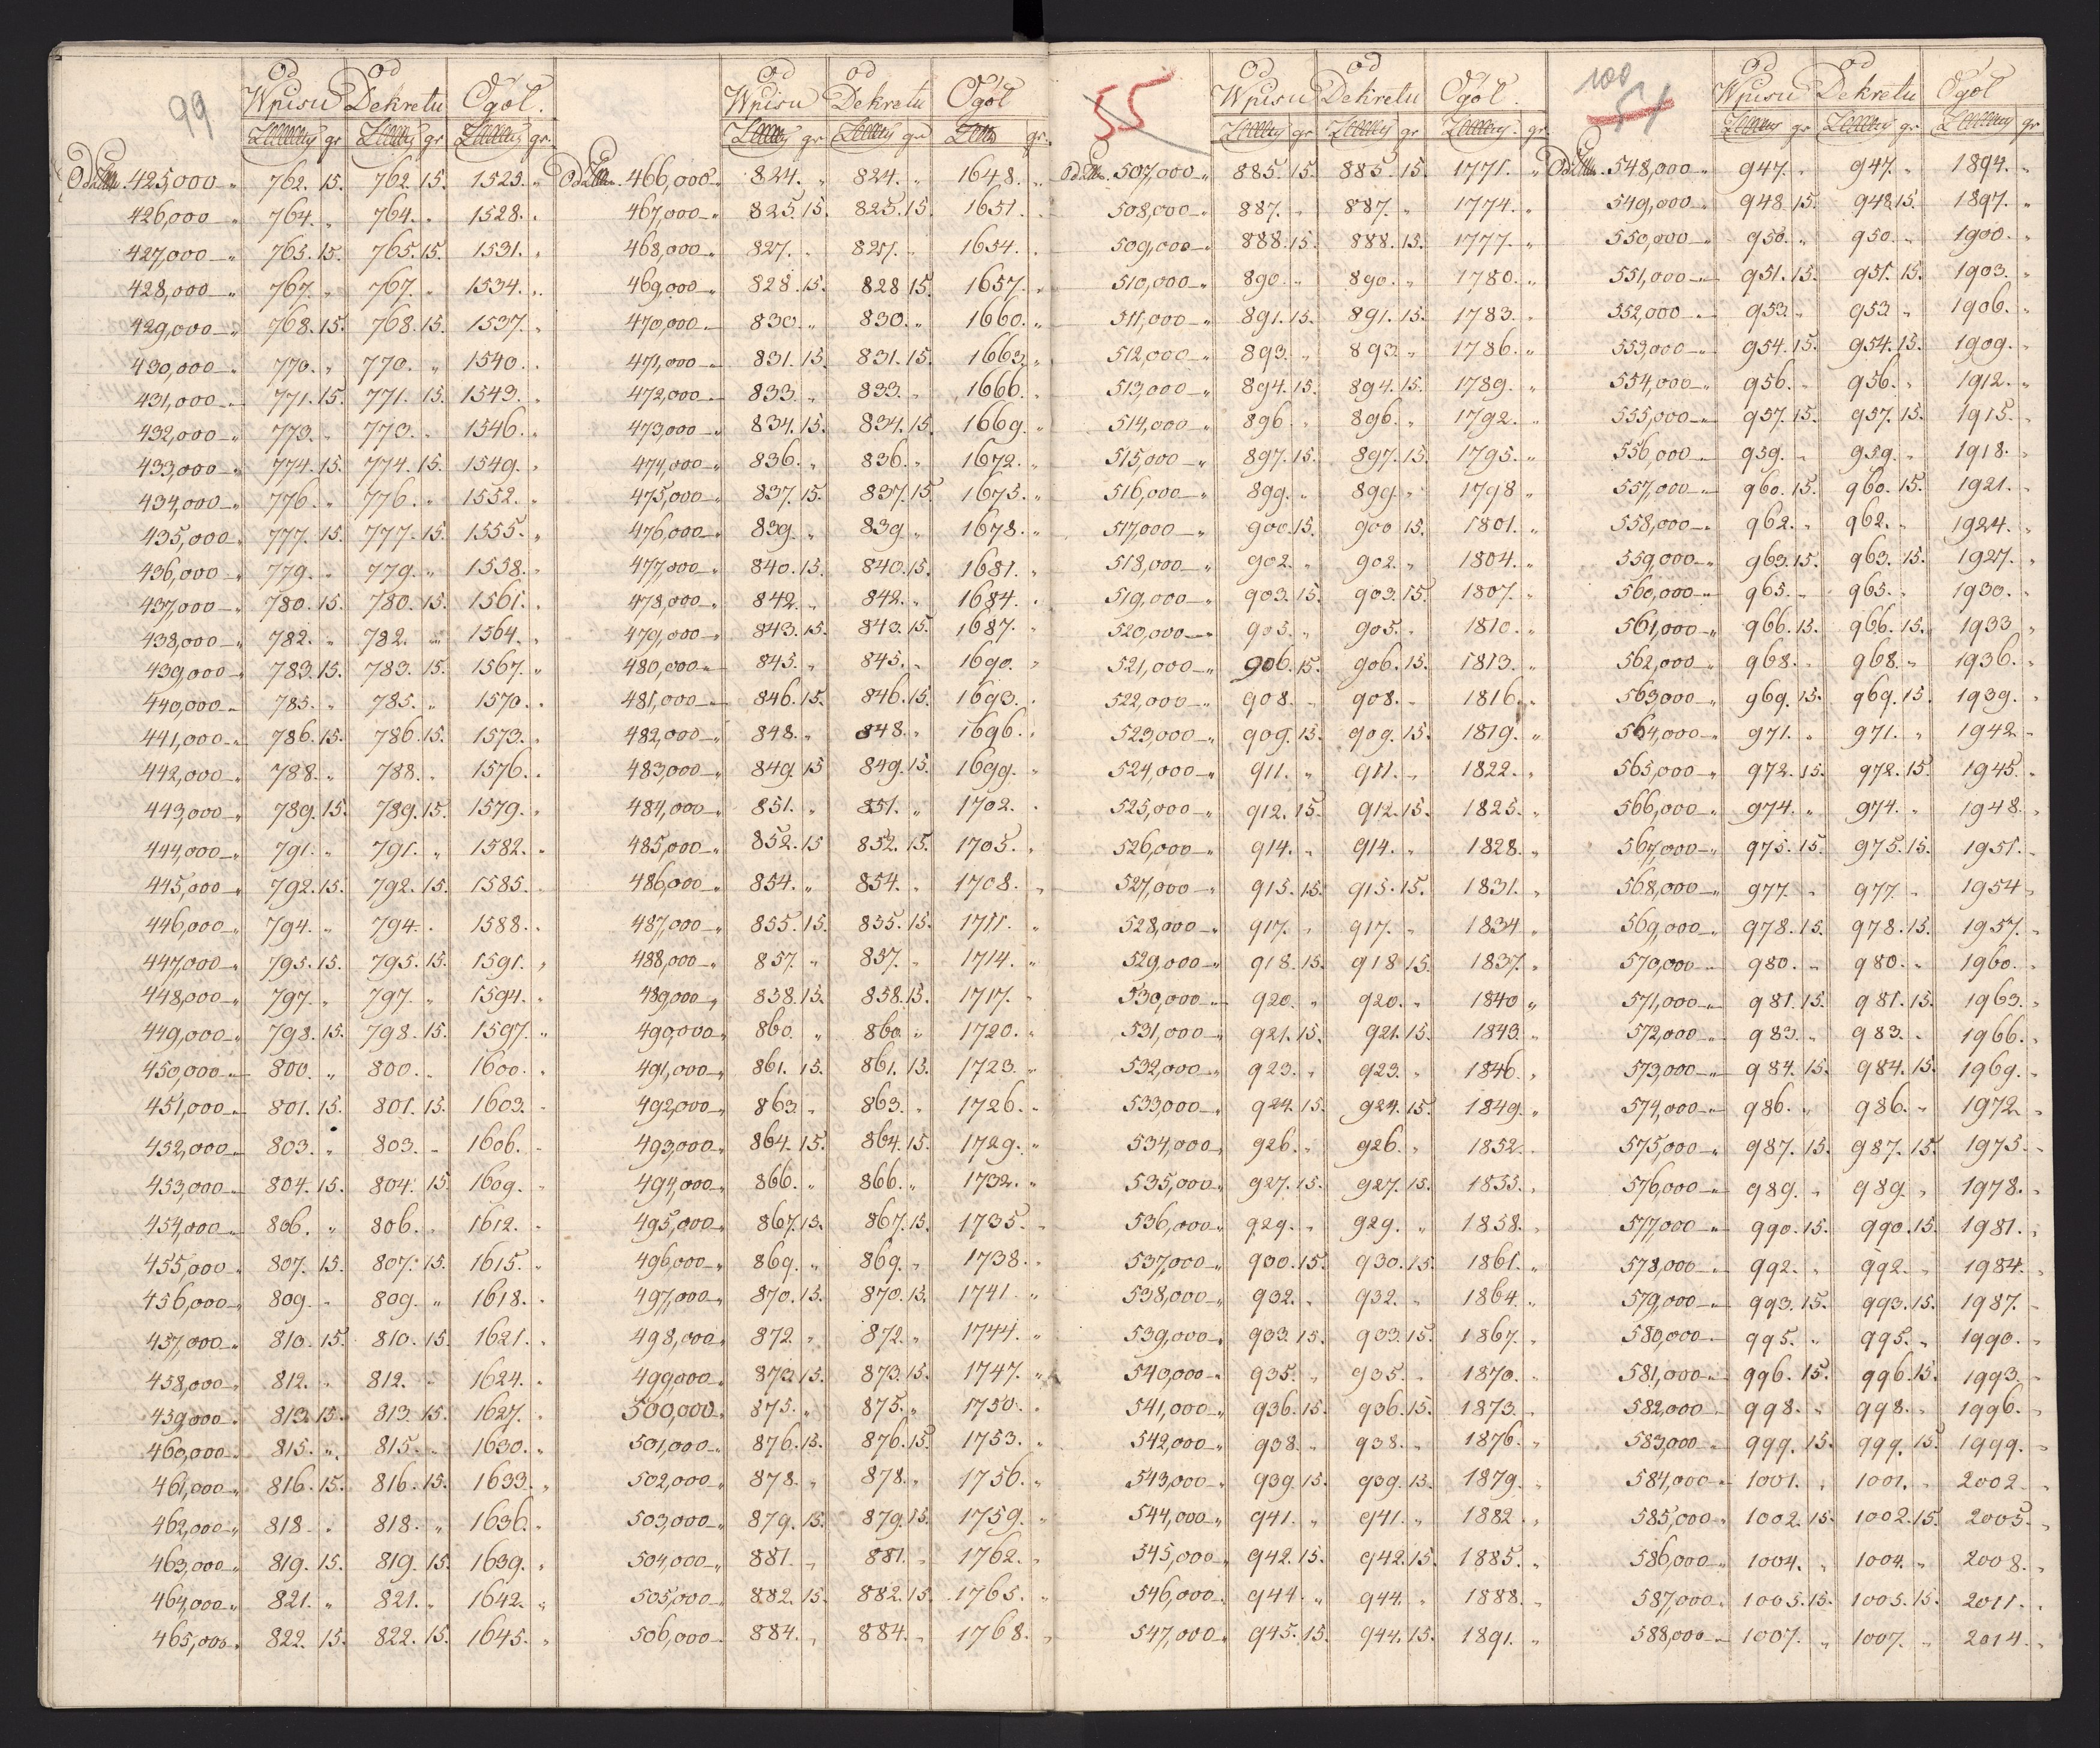 99
Od Od
Wpisu Dekretu Ogół.
gr gr gr.
Od 425,000 „ 762. 15. 762. 15. 1525. „
426,000 „ 764. „ 764. „ 1528. „
427,000 „ 765. 15. 765. 15. 1531. „
428,000 „ 767. „ 767. „ 1534. „
429,000 „ 768. 15. 768. 15. 1537. „
430,000 „ 770. „ 770. „ 1540. „
431,000 „ 771. 15. 771. 15. 1543. „
432,000 „ 773. „ 773. „ 1546. „
433,000 „ 774. 15. 774. 15. 1549. „
434,000 „ 776. „ 776. „ 1552. „
435,000 „ 777. 15. 777. 15. 1555. „
436,000 „ 779. „ 779. „ 1558. „
437,000 „ 780. 15. 780. 15. 1561. „
438,000 „ 782. „ 782. „ 1564. „
439,000 „ 783. 15. 783. 15. 1567. „
440,000 „ 785. „ 785. „ 1570. „
441,000 „ 786. 15. 786. 15. 1573. „
442,000 „ 788. „ 788. „ 1576. „
443,000 „ 789. 15. 789. 15. 1579. „
444,000 „ 791. „ 791. „ 1582. „
445,000 „ 792. 15. 792. 15. 1585. „
446,000 „ 794. „ 794. „ 1588. „
447,000 „ 795. 15. 795. 15. 1591. „
448,000 „ 797. „ 797. „ 1594. „
449,000 „ 798. 15. 798. 15. 1597. „
450,000 „ 800. „ 800. „ 1600. „
451,000 „ 801. 15. 801. 15. 1603. „
452,000 „ 803. „ 803. „ 1606. „
453,000 „ 804. 15. 804. 15 1609. „
454,000 „ 806. „ 806. „ 1612. „
455,000 „ 807. 15. 807. 15. 1615. „
456,000 „ 809. „ 809. „ 1618. „
457,000 „ 810. 15. 810. 15. 1621. „
458,000 „ 812. „ 812. „ 1624. „
459,000 „ 813. 15. 813. 15. 1627. „
460,000 „ 815. „ 815. „ 1630. „
461,000 „ 816. 15. 816. 15. 1633. „
462,000 „ 818. „ 818. „ 1636. „
463,000 „ 819. 15. 819. 15. 1639. „
464,000 „ 821. „ 821. „ 1642. „
465,000 „ 822. 15. 822. 15. 1645. „
Od Od
Wpisu Dekretu Ogół
gr gr gr.
Od 466,000 „ 824. „ 824. „ 1648. „
467,000 „ 825. 15. 825. 15. 1651. „
468,000 „ 827. „ 827. „ 1654. „
469,000 „ 828. 15. 828 15. 1657. „
470,000 „ 830. „ 830. „ 1660. „
471,000 „ 831. 15. 831. 15. 1663. „
472,000 „ 833. „ 833. „ 1666. „
473,000 „ 834. 15. 834. 15. 1669. „
474,000 „ 836. „ 836. „ 1672. „
475,000 „ 837. 15. 837. 15. 1675. „
476,000 „ 839. „ 839. „ 1678. „
477,000 „ 840. 15. 840. 15. 1681. „
478,000 „ 842. „ 842. „ 1684. „
479,000 „ 843. 15. 843. 15. 1687. „
480,000 „ 845. „ 845. „ 1690. „
481,000 „ 846. 15. 846. 15. 1693. „
482,000 „ 848. „ 848. „ 1696. „
483,000 „ 849. 15 849. 15. 1699. „
484,000 „ 851. „ 851. „ 1702. „
485,000 „ 852. 15 852. 15. 1705. „
486,000 „ 854. „ 854. „ 1708. „
487,000 „ 855. 15. 855. 15. 1711. „
488,000 „ 857. „ 857. „ 1714. „
489,000 „ 858. 15. 858. 15. 1717. „
490,000 „ 860. „ 860. „ 1720. „
491,000 „ 861. 15. 861. 15. 1723. „
492,000 „ 863. „ 863. „ 1726. „
493,000 „ 864. 15. 864. 15. 1729. „
494,000 „ 866. „ 866. „ 1732. „
495,000 „ 867. 15. 867. 15. 1735. „
496,000 „ 869. „ 869. „ 1738. „
497,000 „ 870. 15. 870. 15. 1741. „
498,000 „ 872. „ 872. „ 1744. „
499,000 „ 873. 15. 873. 15. 1747. „
500,000 „ 875. „ 875. „ 1750. „
501,000 „ 876. 15. 876. 15. 1753. „
502,000 „ 878. „ 878. „ 1756. „
503,000 „ 879. 15. 879. 15. 1759. „
504,000 „ 881. „ 881. „ 1762. „
505,000 „ 882. 15. 882. 15. 1765. „
506,000 884. „ 884. „ 1768. „
55
Od Od
Wpisu Dekretu Ogół.
gr gr gr
Od 507,000 „ 885. 15. 885. 15. 1771. „
508,000 „ 887. „ 887. „ 1774. „
509,000 „ 888. 15. 888. 15. 1777. „
510,000 „ 890. „ 890. „ 1780. „
511,000 „ 891. 15. 891. 15. 1783. „
512,000 „ 893. „ 893. „ 1786. „
513,000 „ 894. 15. 894. 15. 1789. „
514,000 „ 896. „ 896. „ 1792. „
515,000 „ 897. 15. 897. 15. 1795. „
516,000 „ 899. „ 899. „ 1798 „
517,000 „ 900. 15. 900 15. 1801. „
518,000 „ 902. „ 902. „ 1804. „
519,000 „ 903. 15. 903. 15. 1807. „
520,000 „ 905. „ 905. „ 1810. „
521,000 „ 906. 15. 906. 15. 1813. „
522,000 „ 908. „ 908. „ 1816. „
523,000 „ 909. 15. 909. 15. 1819. „
524,000 „ 911. „ 911. „ 1822. „
525,000 „ 912. 15. 912. 15. 1825. „
526,000 „ 914. „ 914. „ 1828. „
527,000 „ 915. 15. 915. 15. 1831. „
528,000 „ 917. „ 917. „ 1834 „
529,000 „ 918. 15. 918 15. 1837. „
530,000 „ 920. „ 920. „ 1840 „
531,000 „ 921. 15. 921. 15. 1843. „
532,000 „ 923. „ 923. „ 1846. „
533,000 „ 924. 15. 924. 15. 1849. „
534,000 „ 926. „ 926. „ 1852. „
535,000 „ 927. 15. 927. 15. 1855. „
536,000 „ 929. „ 929. „ 1858. „
537,000 „ 930. 15. 930. 15. 1861. „
538,000 „ 932. „ 932. „ 1864. „
539,000 „ 933. 15. 933. 15. 1867. „
540,000 „ 935. „ 935. „ 1870. „
541,000 „ 936. 15. 936. 15. 1873. „
542,000 „ 938. „ 938. „ 1876. „
543,000 „ 939. 15. 939. 15. 1879. „
544,000 „ 941. „ 941. „ 1882. „
545,000 „ 942. 15. 942. 15. 1885. „
546,000 „ 944. „ 944. „ 1888. „
547,000 „ 945. 15. 944. 15. 1891. „
100
54
Od Od
Wpisu Dekretu Ogół
gr gr gr
Od 548,000 „ 947. „ 947. „ 1894. „
549,000 „ 948. 15. 948 15. 1897. „
550,000 „ 950. „ 950. „ 1900. „
551,000 „ 951. 15. 951. 15. 1903. „
552,000 „ 953. „ 953. „ 1906. „
553,000 „ 954. 15. 954. 15. 1909. „
554,000 „ 956. „ 956. „ 1912. „
555,000 „ 957. 15. 957. 15. 1915. „
556,000 „ 959. „ 959. „ 1918. „
557,000 „ 960. 15. 960. 15. 1921. „
558,000 „ 962. „ 962. „ 1924. „
559,000 „ 963. 15. 963. 15. 1927. „
560,000 „ 965. „ 965. „ 1930. „
561,000 „ 966. 15. 966. 15. 1933 „
562,000 „ 968. „ 968. „ 1936. „
563,000 „ 969. 15. 969. 15 1939. „
564,000 „ 971. „ 971. „ 1942. „
565,000 „ 972. 15. 972. 15. 1945. „
566,000 „ 974. „ 974. „ 1948. „
567,000 „ 975. 15. 975. 15. 1951. „
568,000 „ 977. „ 977. „ 1954 „
569,000 „ 978. 15. 978. 15. 1957. „
570,000 „ 980. „ 980. „ 1960. „
571,000 „ 981. 15. 981. 15. 1963. „
572,000 „ 983. „ 983. „ 1966. „
573,000 „ 984. 15. 984. 15. 1969. „
574,000 „ 986. „ 986. „ 1972. „
575,000 „ 987. 15. 987. 15. 1975. „
576,000 „ 989. „ 989. „ 1978. „
577,000 „ 990. 15. 990. 15. 1981. „
578,000 „ 992. „ 992. „ 1984. „
579,000 „ 993. 15. 993. 15. 1987. „
580,000 „ 995. „ 995. „ 1990. „
581,000 „ 996. 15. 996. 15. 1993. „
582,000 „ 998. „ 998. „ 1996. „
583,000 „ 999. 15. 999. 15. 1999. „
584,000 „ 1001. „ 1001. „ 2002. „
585,000 „ 1002. 15. 1002. 15. 2005. „
586,000 „ 1004. „ 1004. „ 2008. „
587,000 „ 1005. 15. 1005. 15. 2011. „
588,000 „ 1007. „ 1007. „ 2014. „